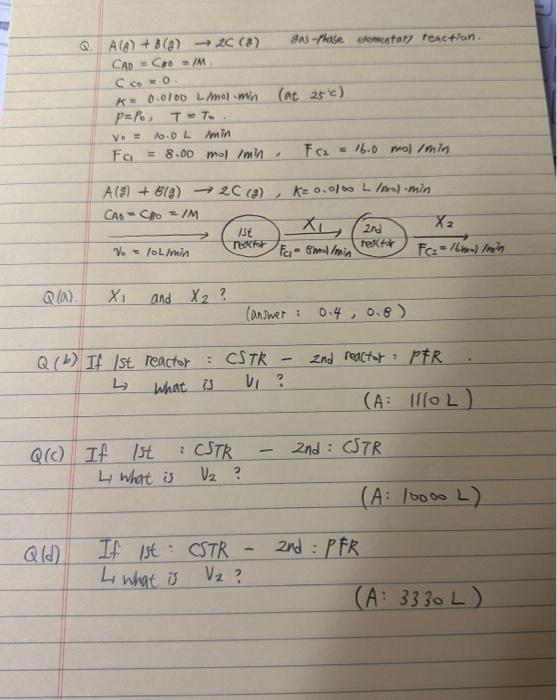 Q. A(g) + B(g) → 2C (g) Gas-Phase elementary reaction.
CA0 = CB0 = 1M.
Cc0 = 0.
K = 0.0100 L/mol·min (at 25°C)
P=P0, T = T0.
V0 = 10.0 L /min
Fc1 = 8.00 mol /min, Fc2 = 16.0 mol /min
A(g) + B(g) → 2C (g), K= 0.0100 L /mol·min
CA0 = CB0 = 1M
V0 = 10L/min
1st reactor
X1
Fc1 = 8mol/min
2nd reactor
X2
Fc2 = 16mol/min
Q(a). X1 and X2 ?
(answer : 0.4, 0.8)
Q(b) If 1st reactor : CSTR - 2nd reactor : PFR.
↳ what is V1 ?
(A: 1110 L)
Q(c) If 1st : CSTR - 2nd : CSTR
↳ what is V2 ?
(A: 10000 L)
Q(d) If 1st : CSTR - 2nd : PFR
↳ what is V2 ?
(A: 3330 L)